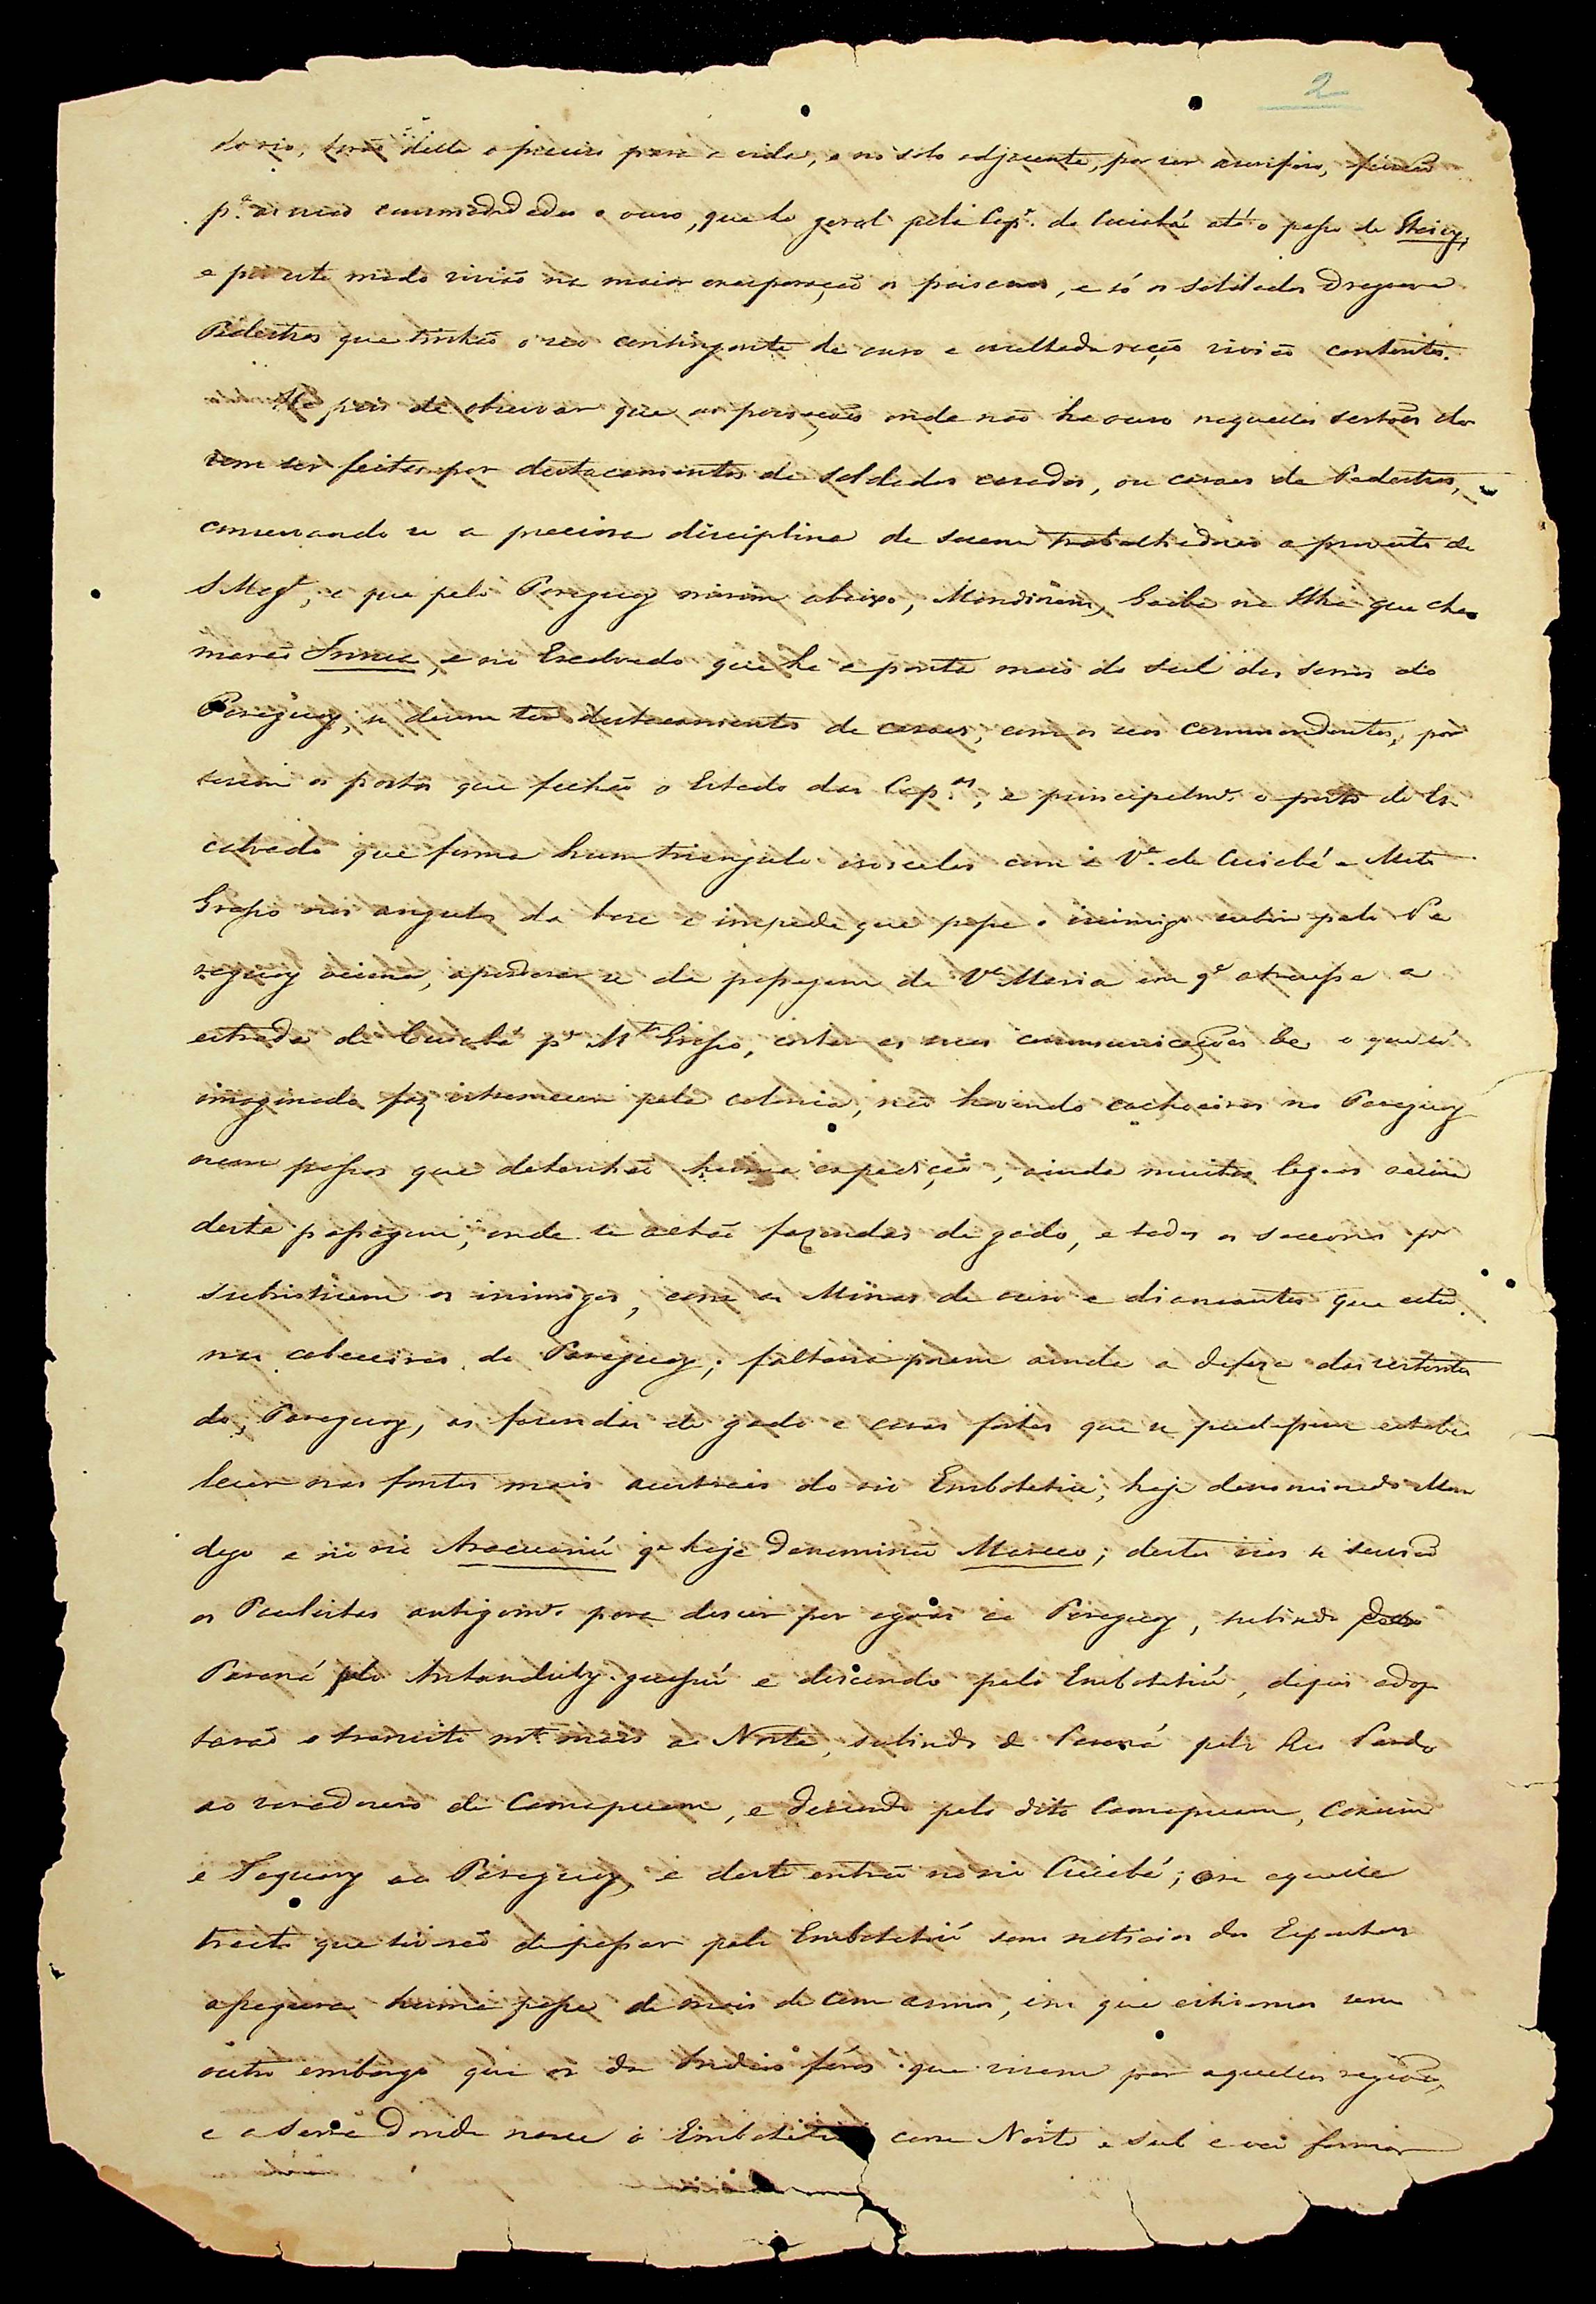 2
do rio, terão deste o preciso para a vida, e no solo adjacente, por ser aurifero,
p.ª as suas commodidades o ouro, que he geral pela Cap.ª de Cuiabá até o passo de
e por este modo vivião na maior exasperação os paisanos, e só os soldados Dragoens
Pedestres que tinhão o seo contingente de ouro e avultada ração vivião contentes.
He pois de observar que as povoações onde não ha ouro naquelles sertões de
vem ser feitas por destacamentos de soldados casados, ou casaes de Pedestres,
conservando se a precisa disciplina de serem trabalhadores a proveito de
S. Mag.e, e que pelo Paraguay mirim abaixo, Gaiba na Ilha que cha
marão e no Escalvado que he a ponta mais do sul das serras do
Paraguay, se devem ter destacamentos de casaes, com os seos commandantes, por
serem os portos que fechão o Estado das Cap.as, e principalm.e o porto do Es
calvado que forma hum triangulo isosceles com a V.ª de Cuiabá e Mato
Grosso nos angulos da base e impede que posse o inimigo subir pelo Pa
raguay acima, apoderar se da passagem de V.ª Maria em q.e atravessa a
estrada de Cuiabá p.ª M.to Grosso, cortar as suas communicações &c o que só
imaginado faz estremecer pela colonia, não havendo cachoeiras no Paraguay
nem passos que detenhão huma expedição, ainda muitas legoas acima
desta passagem, onde se achão fazendas de gado, e todos os soccorros p.ª
subsistirem os inimigos, com as Minas de ouro e diamantes que estão
nas cabeceiras do Paraguay; faltaria porem ainda a defeza das vertentes
do Paraguay, as fazendas de gado e casas fortes que se podessem estabe
lecer nas fontes mais austraes do rio Embotetiú, hoje denominado Mon
dego e no rio q.e hoje denominão; destes rios se servião
os Paulistas antigam.e para descer por agoas ao Paraguay, subindo do
Paraná pelo guassú e descendo pelo Embotetiú, depois adop
tarão o transito m.to mais ao Norte, subindo do Paraná pelo Rio Pardo
ao varadouro de Camapuam, e descendo pelo dito Camapuam, Coxiim
e Taquary ao Paraguay, e deste entrão no rio Cuiabá; aquelle
trato que tiverão de passar pelo Embotetiú sem noticias dos
assegura huma posse de mais de cem annos, em que estivemos sem
outro embargo que os dos Indios féros que vivem por aquellas regiões,
e a serra donde nasce o Embotetiú corre Norte e Sul e vai formar